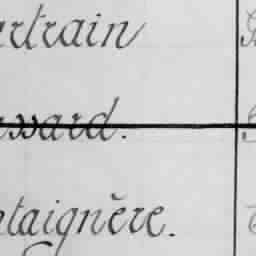 rtrain
ward.
taignère.